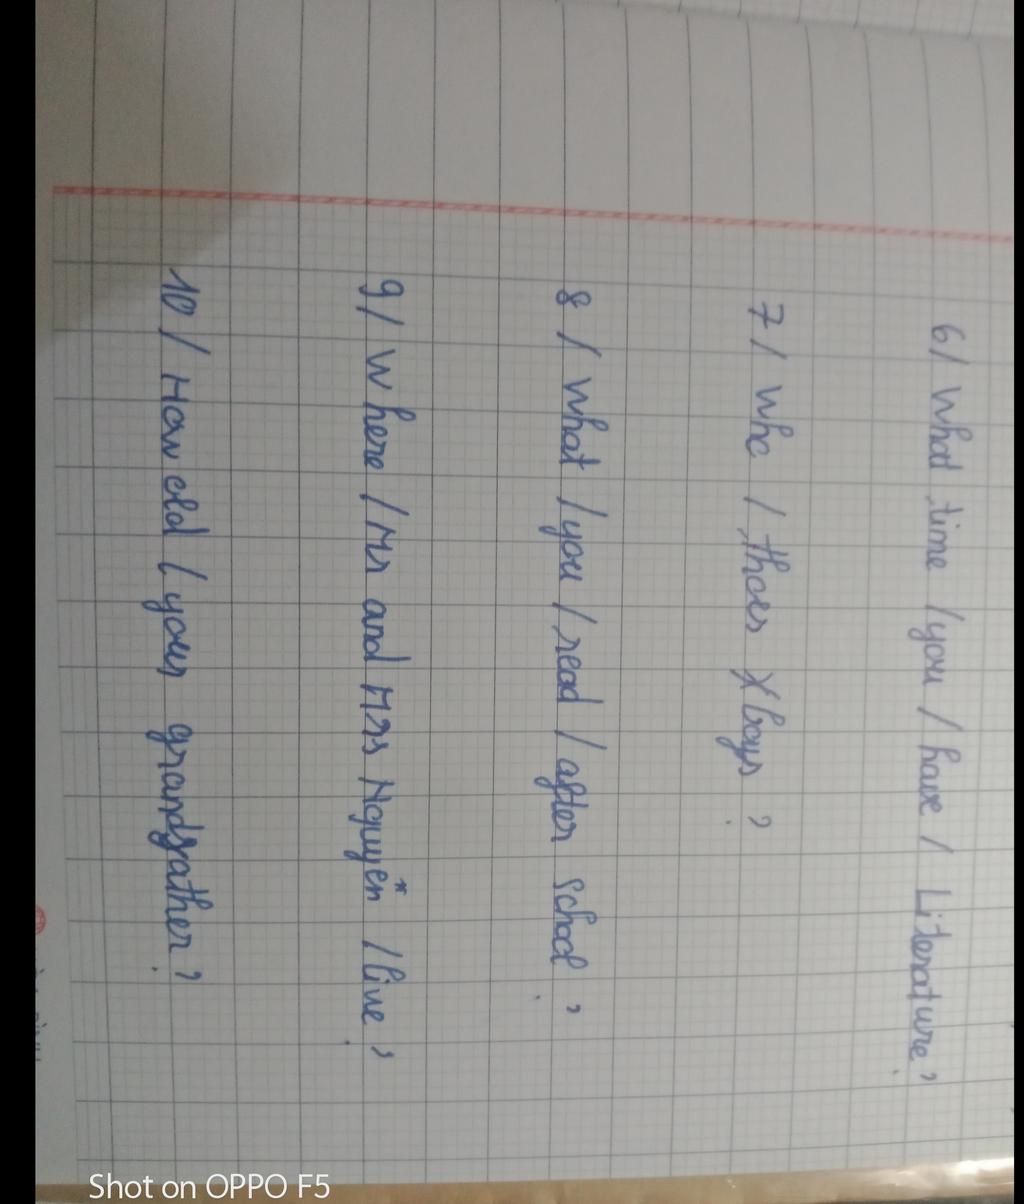 6/ What time / you / have / Literature?
7/ Who / thoes boys?
8/ What / you / read / after school?
9/ Where / Mr and Mrs Nguyễn / live?
10/ How old / your grandfather?
Shot on OPPO F5